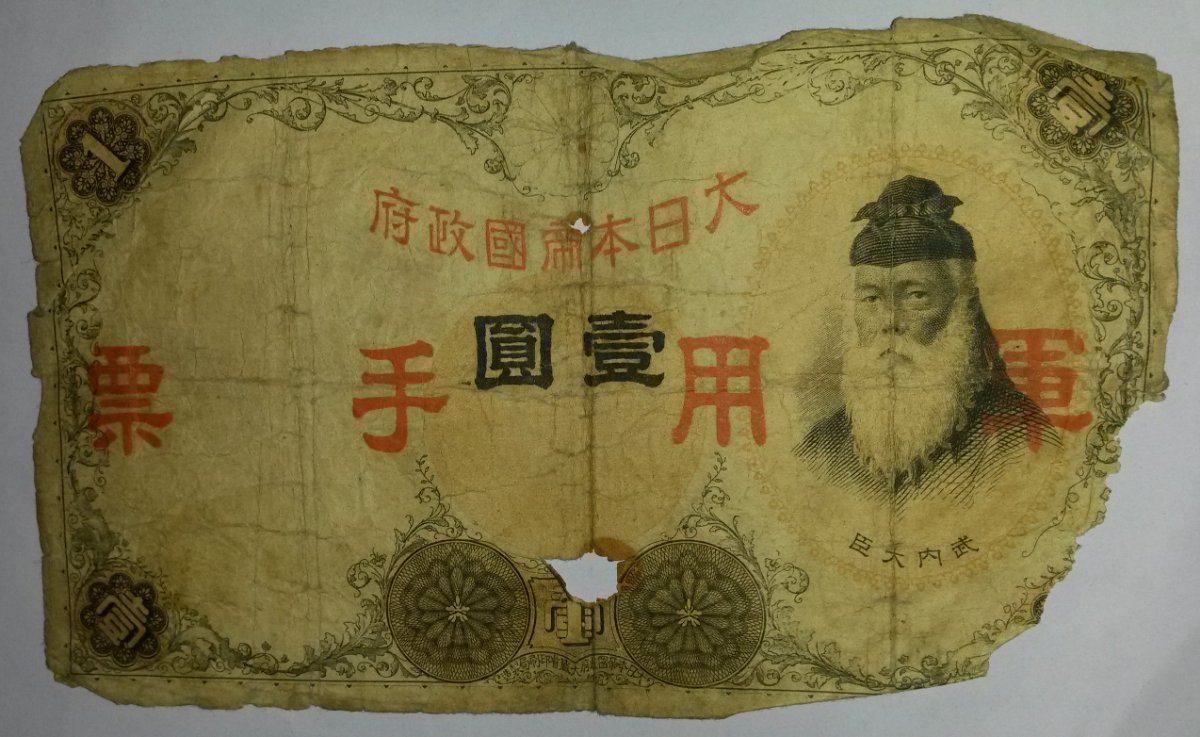 1
壹
大日本帝國政府
壹圓
軍用手票
武内大臣
壹